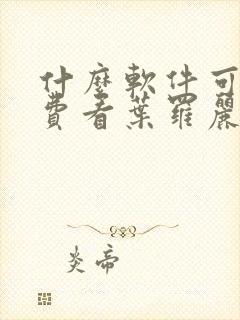 什麼軟件可
費看葉羅麗
炎帝